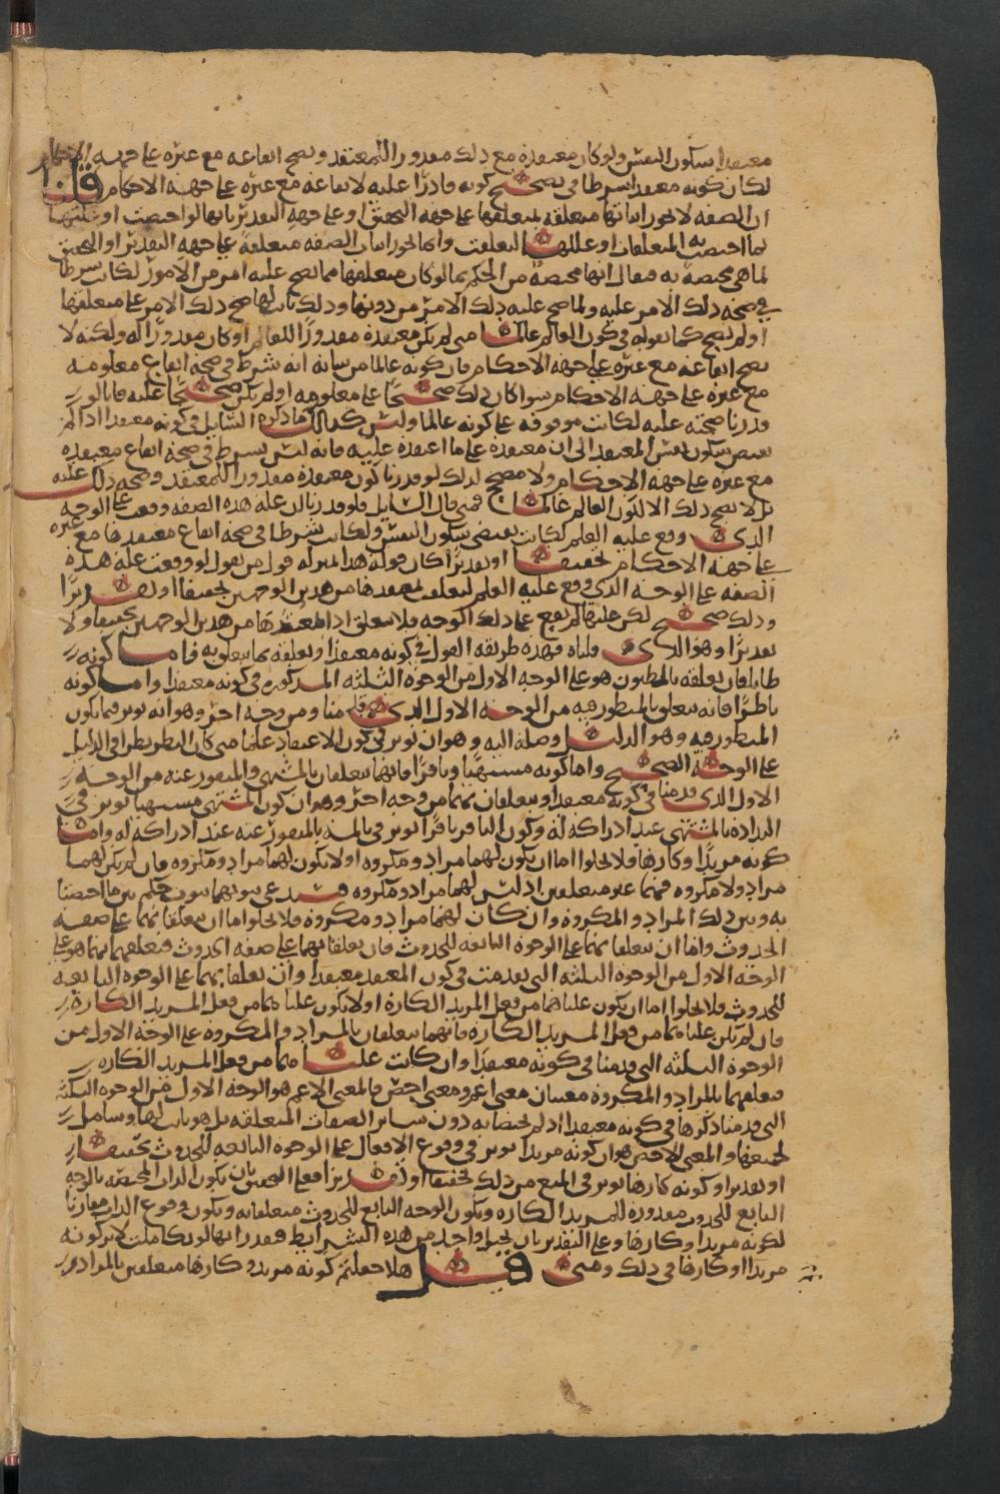 معتقدا سكون النفس ولو كان معتقده مع ذلك مقدور المعتقد ويصح ايقاعه مع غيره على جهه الاحكام
لكان كونه معتقدا شرطا في تصحيح كونه قادرا عليه لايقاعه مع غيره على جهه الاحكام قلنا
ان الصفه لا يجوز اثباتها متعلقه بمتعلقها على جهه التحقيق او على جهه التقدير بانها لو اختصت او علتها
لما اختصت به المتعلقات او عللها لتعلقت وانما يجوز اثبات الصفه متعلقه على جهه التقدير او التحقيق
لما هي مختصه به فقال انها مختصه من الحكم بما لو كان متعلقها مما يصح عليه امر من الامور لكانت شرطا
في صحه ذلك الامر عليه ولما صح عليه ذلك الامر من دونها وذلك ثابت لها صح ذلك الامر على متعلقها
او لم يصح كما نقوله في كون العالم عالما متى لم يكن معتقده مقدورا للعالم او كان مقدورا له ولكنه لا
يصح ايقاعه مع غيره على جهه الاحكام فان كونه عالما من شانه انه شرط في صحه ايقاع معلومه
مع غيره على جهه الاحكام سوا كان ذلك صحيحا على معلومه او لم يكن صحيحا عليه فانا لو
قدرنا صحته عليه لكانت موقوفه على كونه عالما وليس كذلك ما ذكره السايل في كونه معتقدا اذا لم
يقتض سكون نفس المعتقد الى ان معتقده على ما اعتقده عليه فانه ليس بشرط في صحه ايقاع معتقده
مع غيره على جهه الاحكام ولا مصحح لذلك لو قدرنا كون معتقده مقدورا للمعتقد وصحه ذلك عليه
بل لا يصح ذلك الا لكون العالم عالما فمتى قال السايل فلو قدرنا ان عله هذه الصفه وقعت على الوجه
الذي وقع عليه العلم لكانت تقتضي سكون النفس ولكانت شرطا في صحه ايقاع معتقدها مع غيره
على جهه الاحكام تحقيقا او تقديرا كان قوله هذا بمنزله قول من يقول لو وقعت عله هذه
الصفه على الوجه الذي وقع عليه العلم لتعلقت بمعتقدها من هذين الوجهين تحقيقا او تقديرا
وذلك صحيح لكن علتها لم تقع على ذلك الوجه فلا تتعلق اذا بمعتقدها من هذين الوجهين تحقيقا ولا
تقديرا وهو الذي قلناه فهذه طريقه القول في كونه معتقدا وتعلقه بما يتعلق به فاما كونه
ظانا فان تعلقه بالمظنون هو على الوجه الاول من الوجوه الثلثه المذكوره في كونه معتقدا واما كونه
ناظرا فانه يتعلق بالمنظور فيه من الوجه الاول الذي قدمنا ومن وجه اخر وهو انه يوثر فيما يكون
المنظور فيه وهو الدليل وصله اليه وهو ان يوثر في كون الاعتقاد علما متى كان الناظر نظرا في الدليل
على الوجه الصحيح واما كونه مشتهيا ونافرا فانهما يتعلقان بالمشتهى والمنفور عنه من الوجه
الاول الذي قدمنا في كونه معتقدا ويتعلقان بهما من وجه اخر وهو ان كون المشتهي مشتهيا يوثر في
التذاذه بالمشتهى عند ادراكه له وكون النافر نافرا يوثر في تالمه بالمنفور عنه عند ادراكه له واما
كونه مريدا وكارها فلا يخلوا اما ان يكون لهما مراد ومكروه او لا يكون لهما مراد ومكروه فان لم يكن لهما
مراد ولا مكروه فهما غير متعلقين اذ ليس لهما مراد ومكروه يستدعي ثبوتهما ثبوت حكم بين ما اختصتا
به وبين ذلك المراد والمكروه وان كان لهما مراد ومكروه فلا يخلوا اما ان يتعلقا بهما على صفه
الحدوث واما ان يتعلقا بهما على الوجوه التابعه للحدوث فان تعلقا بهما على صفه الحدوث فتعلقهما بهما هو على
الوجه الاول من الوجوه الثلثه التي تقدمت في كون المعتقد معتقدا وان تعلقا بهما على الوجوه التابعه
للحدوث فلا يخلوا اما ان يكون علتاهما من فعل المريد الكاره او لا يكون علتاهما من فعل المريد الكاره
فان لم يكن علتاهما من فعل المريد الكاره فانهما يتعلقان بالمراد والمكروه على الوجه الاول من
الوجوه الثلثه التي قدمنا في كونه معتقدا وان كانت علتاهما من فعل المريد الكاره
فتعلقهما بالمراد والمكروه معنيان معنى اعم ومعنى اخص فالمعنى الاعم هو الوجه الاول من الوجوه الثلثه
التي قدمنا ذكرها في كونه معتقدا اذ لم يختصا به دون ساير الصفات المتعلقه بل هو ثابت لها وشامل
لجميعها والمعنى الاخص هو ان كونه مريدا يوثر في وقوع الافعال على الوجوه التابعه للحدوث تحقيقا
او تقديرا وكونه كارها يوثر في المنع من ذلك تحقيقا او تقديرا فعلى التحقيق بان يكون الذات المختصه بالوجه
التابع للحدوث مقدوره للمريد الكاره ويكون الوجه التابع للحدوث متعلقا به ويكون وقوع الذات مقارنا
لكونه مريدا وكارها وعلى التقدير بان يختل واحد من هذه الشرايط فيقدر انها لو تكاملت لاثر كونه
مريدا او كارها في ذلك ومتى قيل هلا جعلتم كونه مريدا وكارها متعلقين بالمراد